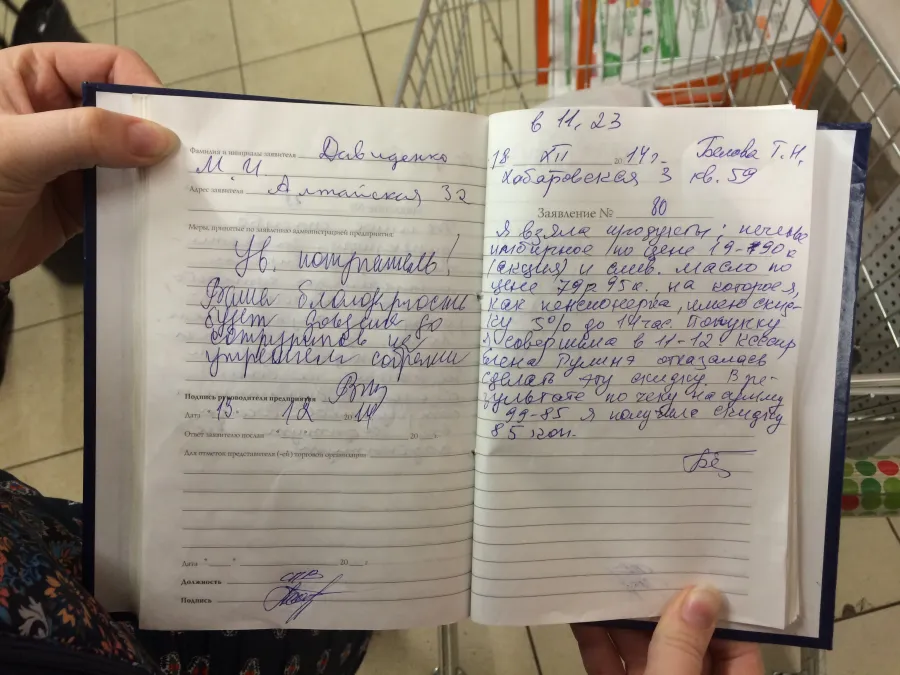 Фамилия и инициалы заявителя Давиденко
М. И.
Адрес заявителя Алтайская 32
Меры, принятые по заявлению администрацией предприятия:
Ув. покупатель!
Ваша благодарность
будет доведена до
сотрудников на
утреннем собрании
Подпись руководителя предприятия
Дата "13" 12 2014
Ответ заявителю послан "___" ______ 20___ г.
Для отметок представителя (-ей) торговой организации
Дата "___" ______ 20___ г
Должность
Подпись
в 11,23
18 XII 2014г. Белова Т.Н.
Хабаровская 3 кв. 59
Заявление № 80
Я взяла продукты: печенье
имбирное по цене 19-90к
(акция) и слив. масло по
цене 79р 95к. на которое я,
как пенсионерка, имею скид-
ку 5% до 14 час. Покупку
я совершила в 11-12. Кассир
отказалась
сделать эту скидку. В ре-
зультате по чеку на сумму
99-85 я получила скидку
85 коп.